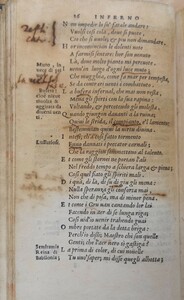 INFERNO
N on impedir lo suo fatale andare:
Vuolsi così colà, dove si puote
Ciò che si vuole; et più non dimandare.
H or incomincian le dolenti note
A farmisi sentire: hor son venuto
Là, dove molto pianto mi percuote.
I o venni in luogo d'ogni luce muto,
Che mugghia, come fa mar per tempesta,
L a bufera infernal, che mai non resta,
Mena gli spirti con la sua rapina,
Voltando, et percotendo gli molesta.
Q uando giungon davanti a la ruina,
Quivi le strida, il compianto, e'l lamento,
Bestemmian quivi la virtù divina.
Eran dannati i peccator carnali,
Che la ragion sommettono al talento.
E come gli stornei ne portan l'ali
Nel freddo tempo a schiera larga et piena;
Così quel fiato gli spiriti mali.
D i quà, di là, di su, di giù gli mena:
Nulla speranza gli conforta mai,
Non che di posa, ma di minor pena.
E come i gru van cantando lor lai
Facendo in aer di se lunga riga;
Così vid'io venir trahendo guai
O mbre portate da la detta briga:
Perch'io dissi; Maestro chi son quelle
Genti, che l'aer nero sì gastiga?
L a prima di color, di cui novelle
Tu vuoi saper, mi disse quegli allhotta;
Semiramis
Reina di
Babilonia